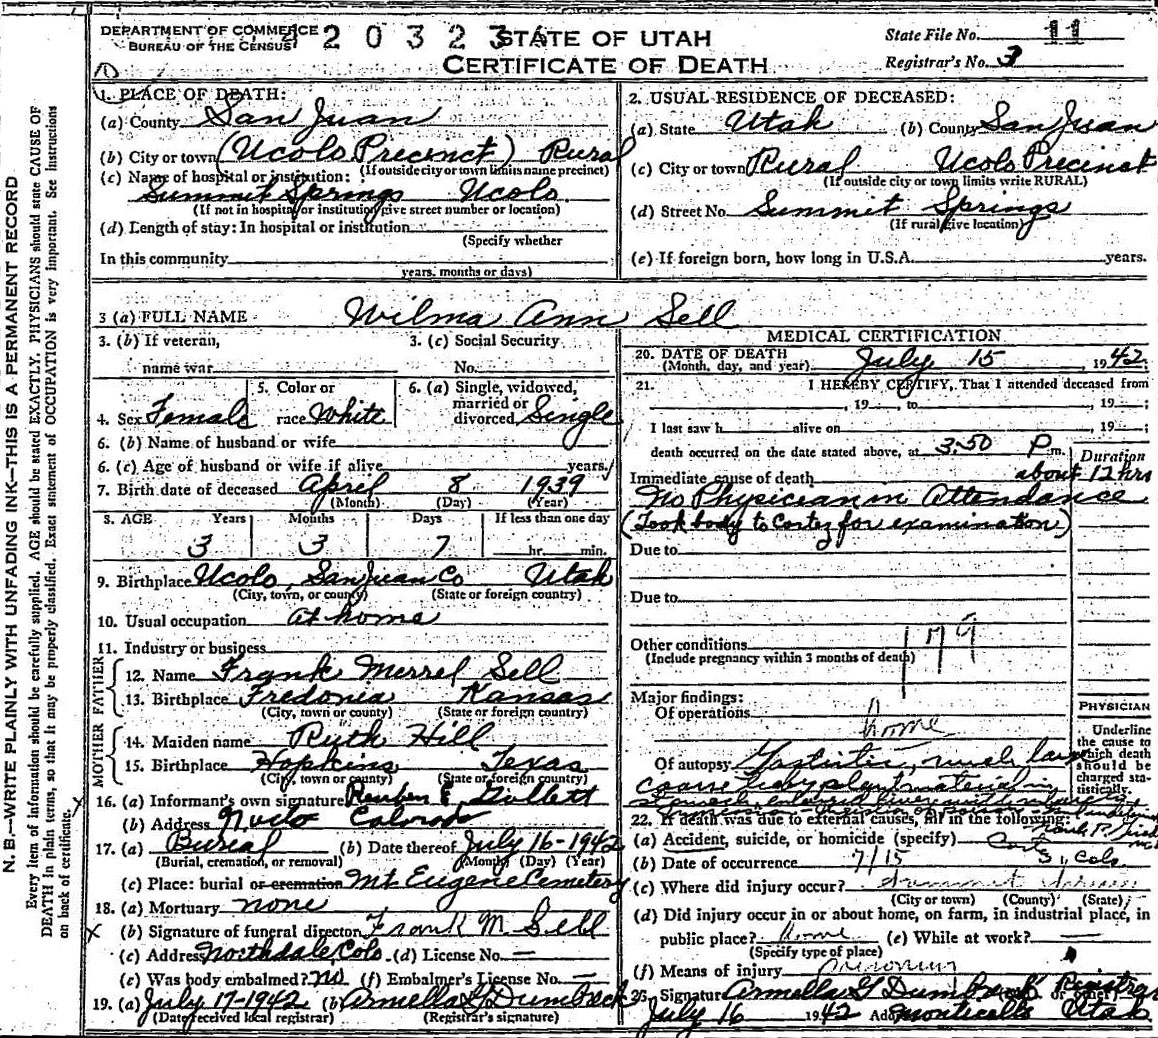 DEPARTMENT OF COMMERCE
BUREAU OF THE CENSUS
4 2 0 3 2 3
STATE OF UTAH
CERTIFICATE OF DEATH
State File No. 11
Registrar's No. 3
N. B.—WRITE PLAINLY WITH UNFADING INK—THIS IS A PERMANENT RECORD
Every item of information should be carefully supplied. AGE should be stated EXACTLY. PHYSICIANS should state CAUSE OF
DEATH in plain terms, so that it may be properly classified. Exact statement of OCCUPATION is very important. See instructions
on back of certificate.
1. PLACE OF DEATH:
(a) County San Juan
(b) City or town (Ucolo Precinct) Rural
(If outside city or town limits name precinct)
(c) Name of hospital or institution:
Summit Springs Ucolo
(If not in hospital or institution give street number or location)
(d) Length of stay: In hospital or institution
(Specify whether
In this community
years, months or days)
2. USUAL RESIDENCE OF DECEASED:
(a) State Utah (b) County San Juan
(c) City or town Rural Ucolo Precinct
(If outside city or town limits write RURAL)
(d) Street No. Summit Springs
(If rural give location)
(e) If foreign born, how long in U.S.A. years.
3 (a) FULL NAME Wilma Ann Sell
3. (b) If veteran,
name war
3. (c) Social Security
No.
4. Sex Female
5. Color or
race White
6. (a) Single, widowed,
married or
divorced Single
6. (b) Name of husband or wife
6. (c) Age of husband or wife if alive years.
7. Birth date of deceased April 8 1939
(Month) (Day) (Year)
8. AGE Years Months Days If less than one day
3 3 7 hr. min.
9. Birthplace Ucolo, San Juan Co Utah
(City, town, or county) (State or foreign country)
10. Usual occupation at home
11. Industry or business
FATHER
12. Name Frank Merrel Sell
13. Birthplace Fredonia Kansas
(City, town or county) (State or foreign country)
MOTHER
14. Maiden name Ruth Hill
15. Birthplace Hopkins Texas
(City, town or county) (State or foreign country)
16. (a) Informant's own signature Reuben E. Gollett
(b) Address Colorado
17. (a) Burial (b) Date thereof July 16-1942
(Burial, cremation, or removal) (Month) (Day) (Year)
(c) Place: burial or cremation Mt Eugene Cemetery
18. (a) Mortuary none
(b) Signature of funeral director Frank M. Sell
(c) Address Northdale, Colo. (d) License No. —
(e) Was body embalmed? no (f) Embalmer's License No. —
19. (a) July 17-1942 (b) Armella G Dumbreck
(Date received local registrar) (Registrar's signature)
MEDICAL CERTIFICATION
20. DATE OF DEATH
(Month, day, and year) July 15 1942
21. I HEREBY CERTIFY, That I attended deceased from
, 19 , to , 19 ;
I last saw h alive on , 19 ;
death occurred on the date stated above, at 3:50 P m.
Duration
Immediate cause of death about 12 hrs
No Physician in Attendance
(Took body to Cortez for examination)
Due to
Due to
Other conditions
(Include pregnancy within 3 months of death)
179
Major findings:
Of operations
None
Of autopsy Gastritis, much
coarse plant material in
stomach, enlarged liver and
PHYSICIAN
Underline
the cause to
which death
should be
charged sta-
tistically.
22. If death was due to external causes, fill in the following:
(a) Accident, suicide, or homicide (specify)
(b) Date of occurrence 7/15 Colo.
(c) Where did injury occur? Summit Springs
(City or town) (County) (State)
(d) Did injury occur in or about home, on farm, in industrial place, in
public place? Home (e) While at work? —
(Specify type of place)
(f) Means of injury
23. Signature Armella G Dumbreck Registrar
July 16 1942 Address Monticello Utah